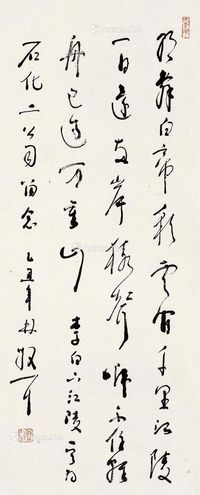 朝辞白帝彩雲間千里江陵
一日還两岸猿聲啼不住輕
舟已過万重山 李白下江陵 寫为
石化二公司留念 乙丑年林散耳